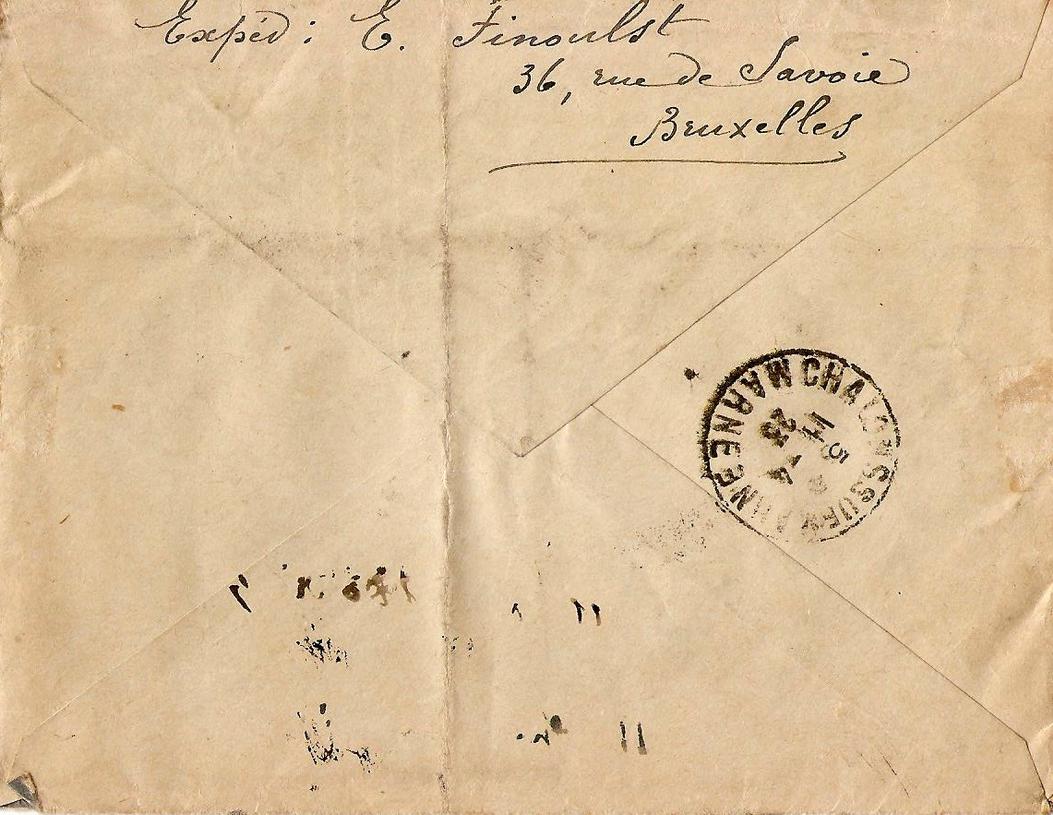 Expéd : E. Finoulst
36, rue de Savoie
Bruxelles
CHALONS SUR MARNE MARNE